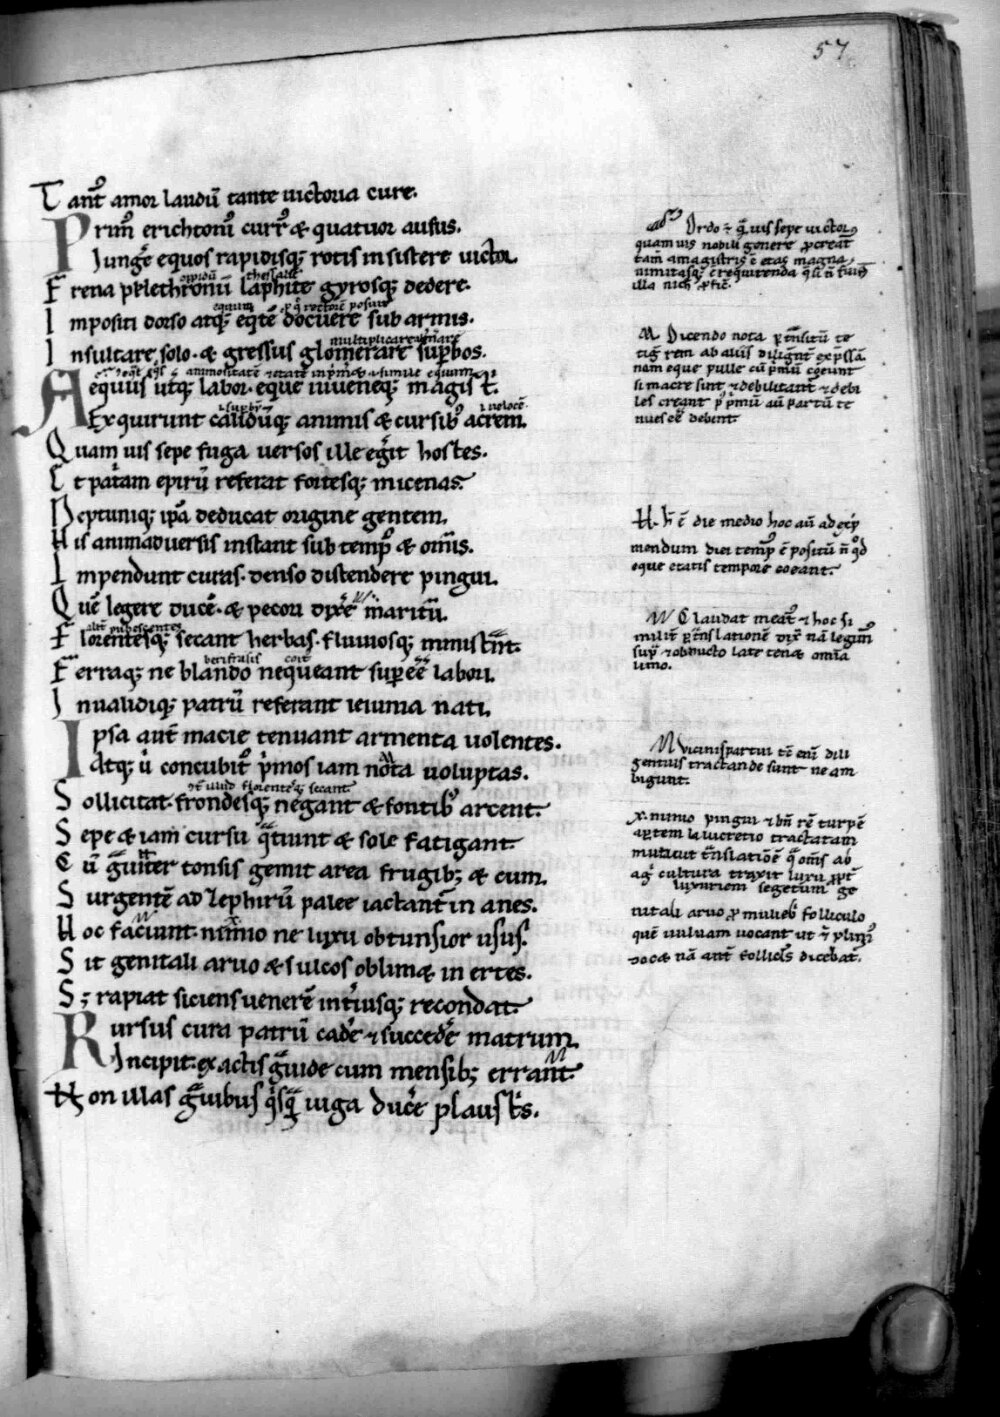 57
Tant᷒ amor laudū tante uictoria cure.
Prim᷒ erichtoni᷒ curr᷒ & quatuor ausus.
Iung̃e equos rapidisq; rotis insistere uictor.
oppidū thessalie
Frena pelethronii laphite gyrosq; dedere.
equum
Impositi dorso atq; eq̄tē docuere sub armis.
multiplicare
Insultare solo & gressus glomerare sup̱bos.
Aequus utq; labor. eque iuuenēq; magis t̄.
i. uelocē.
Exquirunt calidūq; animis & cursib᷒ acrem.
Quam uis sepe fuga uersos ille eg̃it hostes.
Et pat̃am epirū referat fortesq; micenas.
Neptuniq; ip̄a deducat origine gentem.
His animaduersis instant sub temp᷒ & om̄is.
Impendunt curas. denso distendere pingui.
Quē legere ducē. & pecori dixē maritū.
pubescentes
Florentesq; secant herbas. fluuiosq; ministr̄nt.
coitu
Ferraq; ne blando nequeant sup̱ ēē labori.
Inualidiq; patrū referant ieiunia nati.
Ipsa aut̄ macie tenuant armenta uolentes.
Atq; ů concubit᷒ p̊mos iam nota uoluptas.
florenteq; secant
Sollicitat frondesq; negant & fontib᷒ arcent.
Sepe & iam cursu q̄tiunt & sole fatigant.
Cū g̃uiter tonsis gemit area frugib; & cum.
Surgentē ad zephirū palee iactant̄ in anes.
Hoc faciunt nimio ne luxu obtunsior usus.
Sit genitali aruo & suicos oblim& in ertes.
S; rapiat siciens uenerē int̃iusq; recondat.
Rursus cura patrū cad̃e & succed̃e matrum.
Incipit. ex actis g̃uide cum mensib; errant.
Non illas g̃uibus q̊sq̄ iuga duc̃e plaustr̄s.
Ordo ē q̄uis sepe uictor,
quam uis nobili genere p̱creat᷒
tam amagistris ē etas magna,
illa nich p̱fic̄.
Dicendo nota p̱ t̄nsitū te
tig̃ rem ab aliis dilig̃nt̄ exp̱ssā.
nam eque pulle cū p̊mū coeunt
si macre sunt & debilitant̄ & debi
les creant. p᷒ p̊mū aū partū te
nues ēē debint.
H. h̄ ē die medio hoc aū ad exp̊
mendum diei temp᷒ ē positū n̄ q̊d
eque etatis tempore coeant.
Claudat meat᷒ & hoc si
milit̄ p̱ t̄nslationē dix̄ nā legim᷒
sup̱ & obducto late tenax omīa
limo.
Vicinis partui tē eni᷒ dili
gentius tractande sunt ne am
bigunt.
nimio pingui & bn̄ rē turpē
ap̱tem la lucretio tractatam
mutauit t̄nslatiōē q̄ om̄s ab
ag̊ cultura traxit luxu p̱pt̄
luxuriem segetum ge
nitali aruo p̱ muliebi folliculo
quē uuluam uocant ut & plini᷒
docet nā ant̄ follicl̄s dicebat̄.